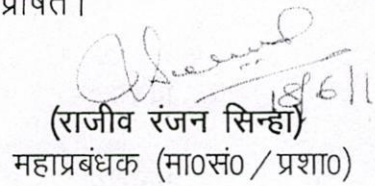 प्रेषित।
18/6/11
(राजीव रंजन सिन्हा)
महाप्रबंधक (मा0सं0 / प्रशा0)